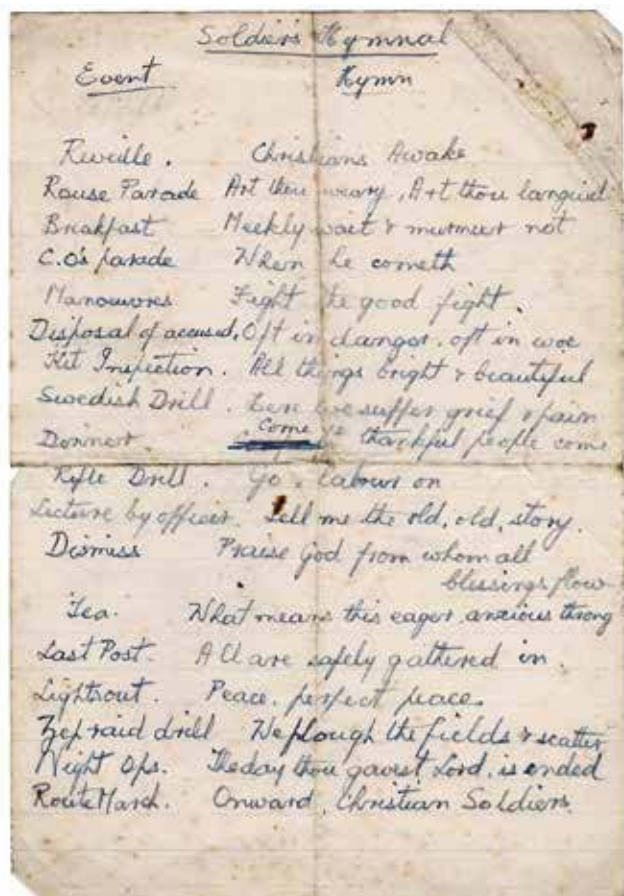 Soldier's Hymnal
Event Hymn
Reveille. Christians Awake
Rouse Parade Art thou weary, Art thou languid
Breakfast Meekly wait & murmur not
C.O's parade When he cometh
Manouvres Fight the good fight.
Disposal of accused. Oft in danger, oft in woe
Kit Inspection. All things bright & beautiful
Swedish Drill. Here we suffer grief & pain
Dinner Come ye thankful people come
Rifle Drill. Go, labour on
Lecture by officer. Tell me the old, old, story.
Dismiss Praise God from whom all
blessings flow
Tea. What means this eager, anxious throng
Last Post. All are safely gathered in.
Lights out. Peace, perfect peace
Zep raid drill We plough the fields & scatter
Night Ops. The day thou gavest Lord, is ended
Route March. Onward, Christian Soldiers.